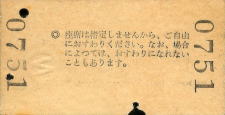 0751
◎ 座席は指定しませんから、ご自由
におすわりください。なお、場合
によつては、おすわりになれない
こともあります。
0751